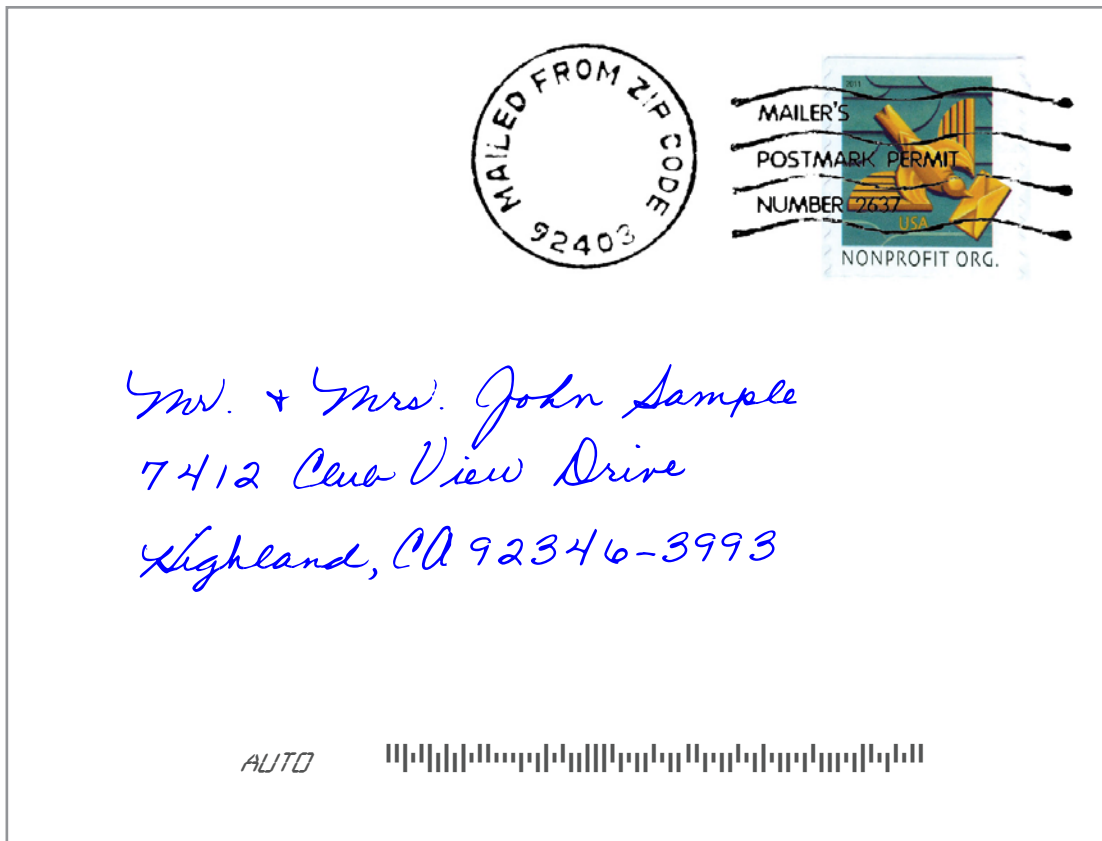 MAILED FROM ZIP CODE
92403
2011
MAILER'S
POSTMARK PERMIT
NUMBER 2637
USA
NONPROFIT ORG.
Mr. + Mrs. John Sample
7412 Club View Drive
Highland, CA 92346-3993
AUTO